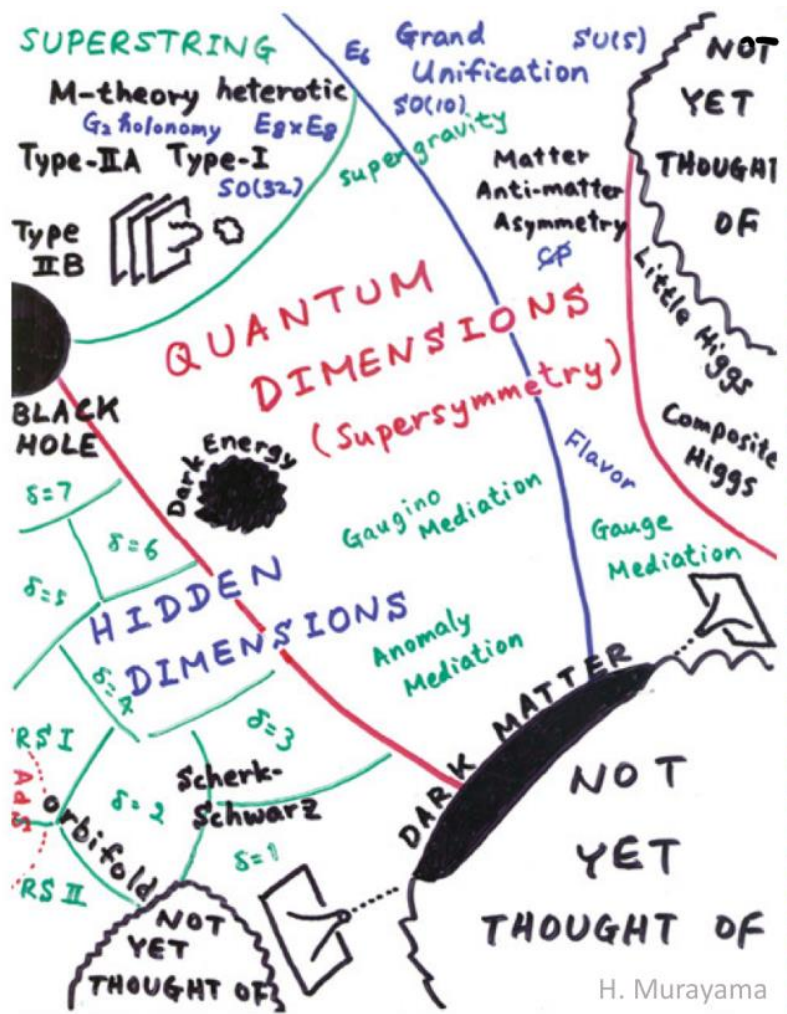 SUPERSTRING
M-theory heterotic
G₂ holonomy E8xE8
Type-IIA Type-I
SO(32)
Type
IIB
E6
Grand
Unification
SU(5)
SO(10)
supergravity
Matter
Anti-matter
Asymmetry
CP
NOT
YET
THOUGHT
OF
Little Higgs
Composite
Higgs
QUANTUM
DIMENSIONS
(Supersymmetry)
BLACK
HOLE
Dark Energy
Flavor
Gaugino
Mediation
Gauge
Mediation
δ=7
δ=6
δ=5
HIDDEN
DIMENSIONS
Anomaly
Mediation
δ=4
δ=3
DARK MATTER
RS I
AdS
orbifold
δ=2
Scherk-
Schwarz
δ=1
RS II
NOT
YET
THOUGHT OF
NOT
YET
THOUGHT OF
H. Murayama